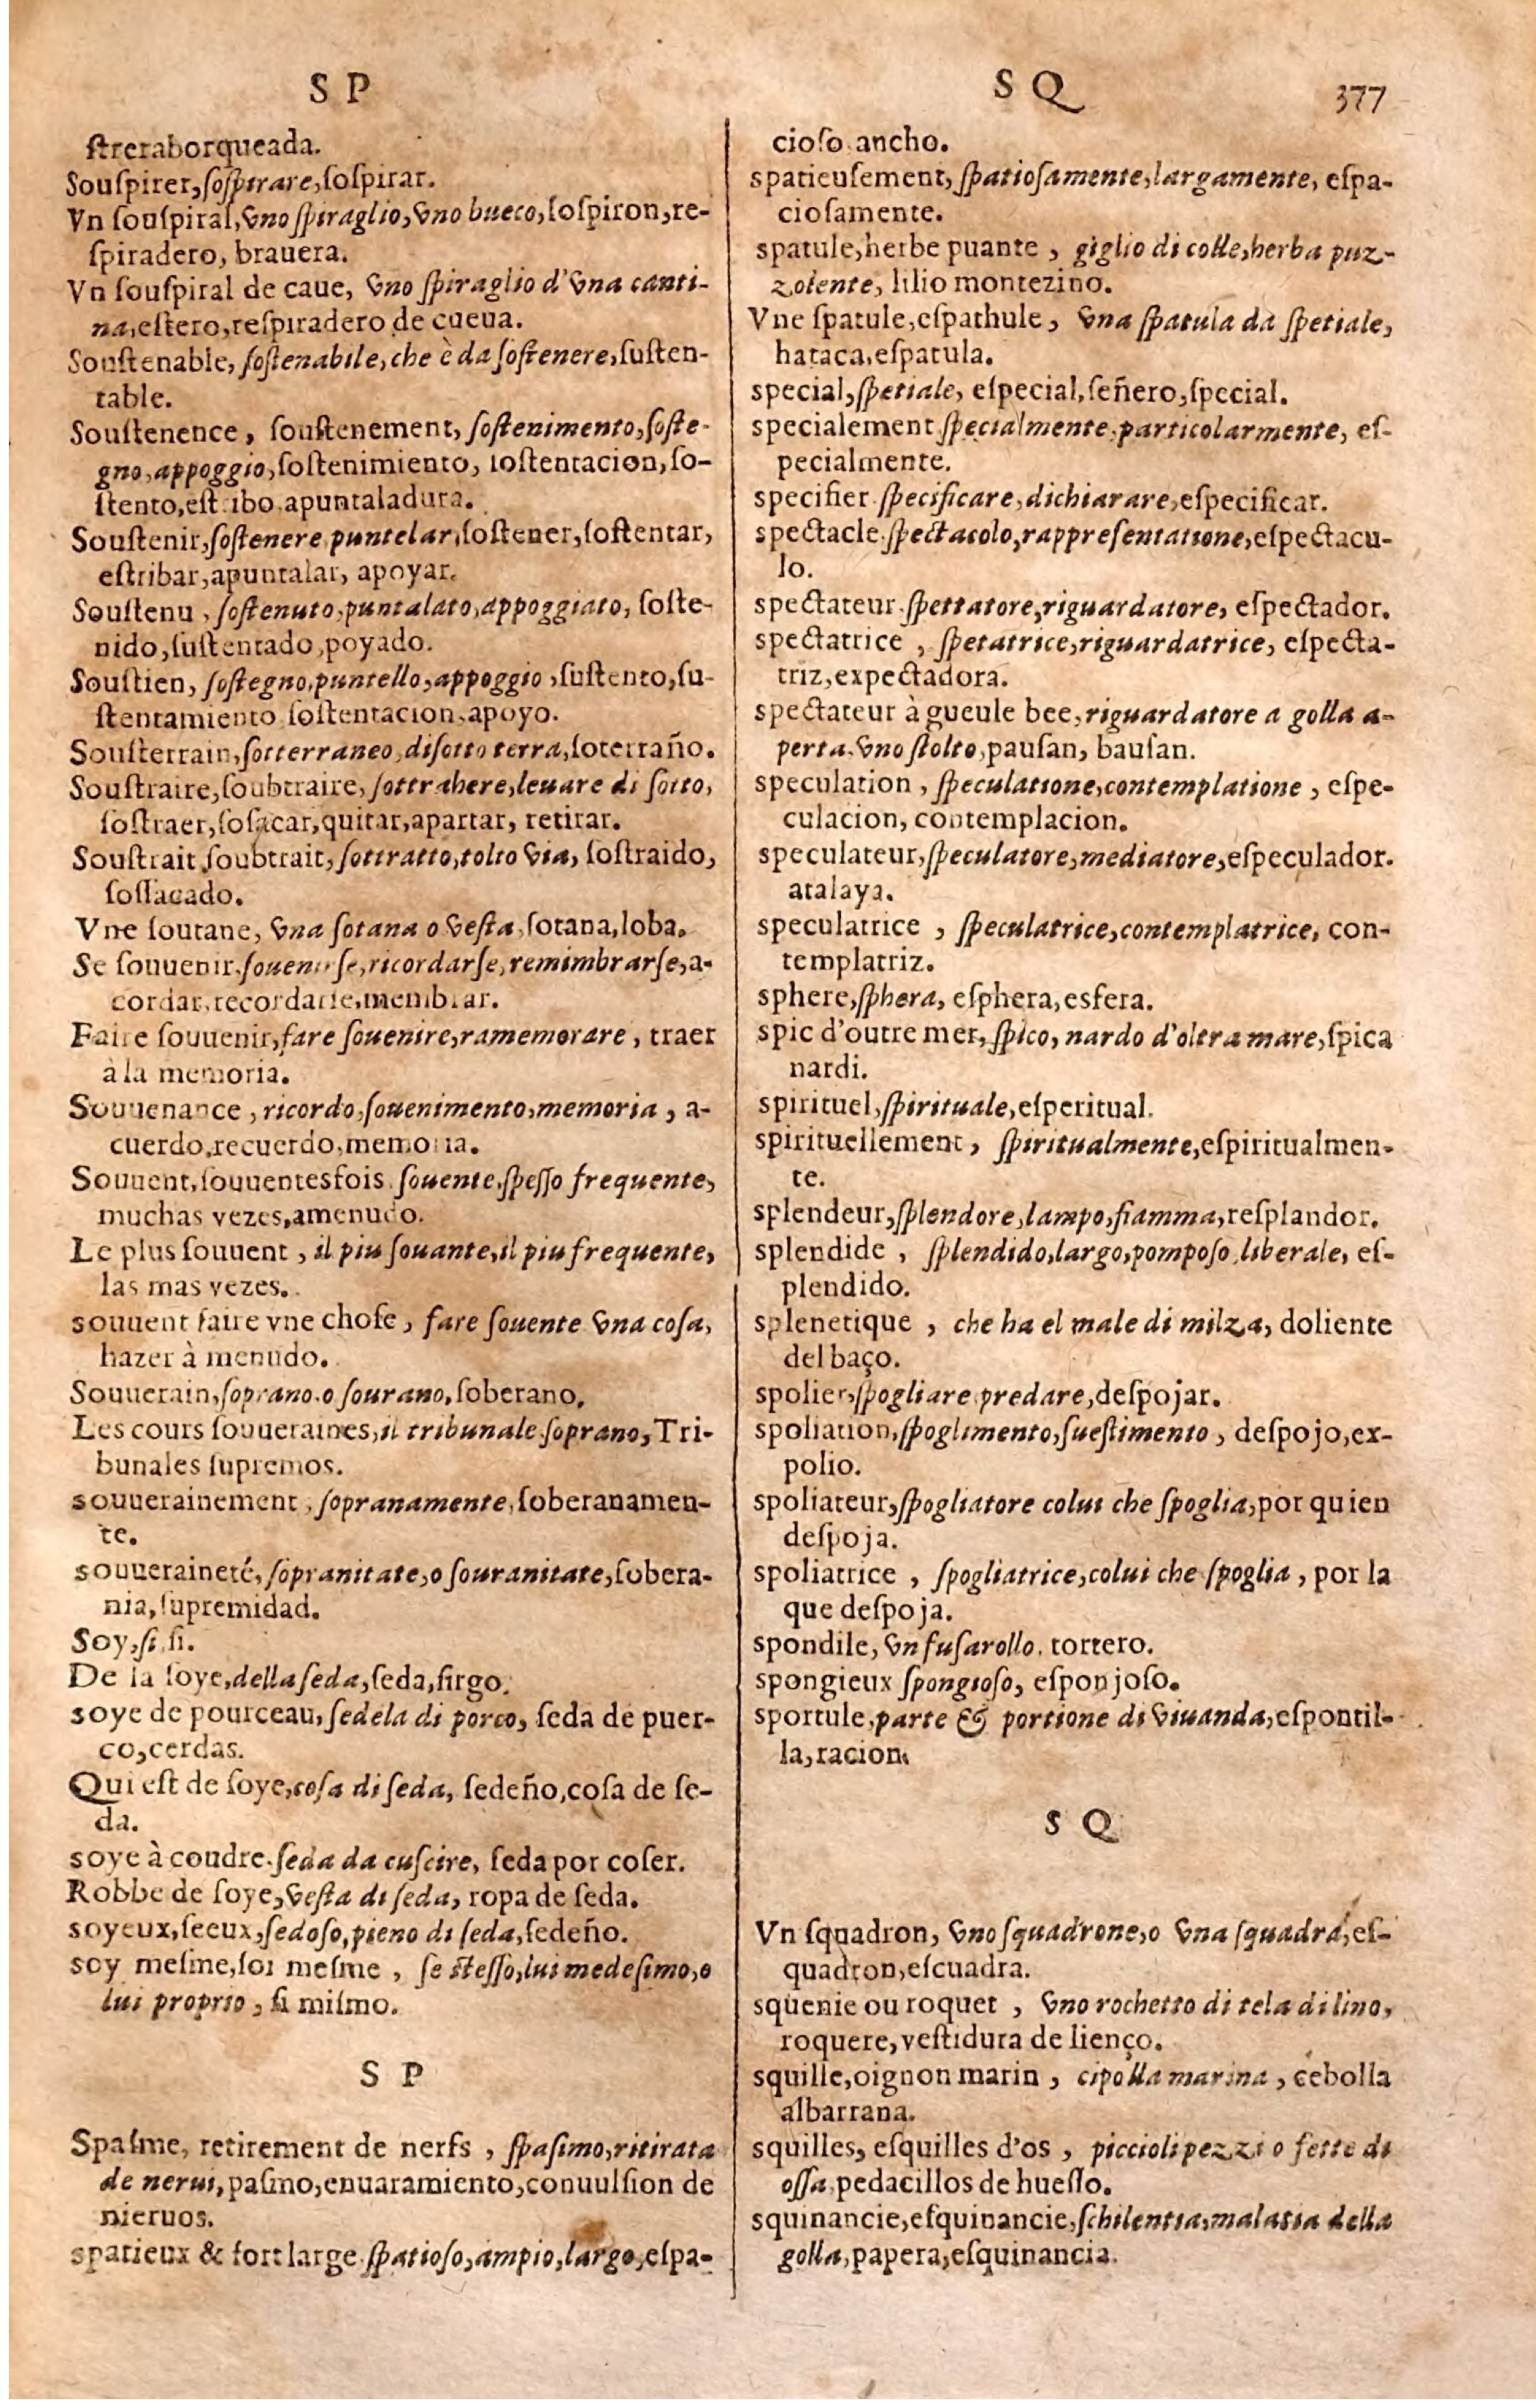 S P
ſtreraborqueada.
Souſpirer, ſoſpirare, ſoſpirar.
Vn ſouſpiral, vno ſpiraglio, vno buco, ſoſpiron, re-
ſpiradero, brauera.
Vn ſouſpiral de caue, vno ſpiraglio d'vna canti-
na, eſtero, reſpiradero de cueua.
Souſtenable, ſoſtenabile, che è da ſoſtenere, ſuſten-
table.
Souſtenence, ſouſtenement, ſoſtenimento, ſoſte-
gno, appoggio, ſoſtenimiento, ſoſtentacion, ſo-
ſtento, eſtribo apuntaladura.
Souſtenir, ſoſtenere puntelar, ſoſtener, ſoſtentar,
eſtribar, apuntalar, apoyar.
Souſtenu, ſoſtenuto, puntalato, appoggiato, ſoſte-
nido, ſuſtentado, poyado.
Souſtien, ſoſtegno, puntello, appoggio, ſuſtento, ſu-
ſtentamiento ſoſtentacion, apoyo.
Souſterrain, ſotterraneo, diſotto terra, ſoterraño.
Souſtraire, ſoubtraire, ſottrahere, leuare di ſotto,
ſoſtraer, ſoſacar, quitar, apartar, retirar.
Souſtrait, ſoubtrait, ſottratto, tolto via, ſoſtraido,
ſoſſacado.
Vne ſoutane, vna ſotana o veſta, ſotana, loba.
Se ſouuenir, ſouenirſe, ricordarſe, remimbrarſe, a-
cordar, recordarſe, membrar.
Faire ſouuenir, fare ſouenire, ramemorare, traer
à la memoria.
Souuenance, ricordo, ſouenimento, memoria, a-
cuerdo, recuerdo, memoria.
Souuent, ſouuentesfois ſouente, ſpeſſo frequente,
muchas vezes, amenudo.
Le plus ſouuent, il piu ſouante, il piu frequente,
las mas vezes.
souuent faire vne choſe, fare ſouente vna coſa,
hazer à menudo.
Souuerain, ſoprano. o ſourano, ſoberano.
Les cours ſouueraines, il tribunale ſoprano, Tri-
bunales ſupremos.
souuerainement, ſopranamente, ſoberanamen-
te.
souueraineté, ſopranitate, o ſouranitate, ſobera-
nia, ſupremidad.
Soy, ſi, ſi.
De la ſoye, della ſeda, ſeda, ſirgo.
soye de pourceau, ſedela di porco, ſeda de puer-
co, cerdas.
Qui eſt de ſoye, coſa di ſeda, ſedeño, coſa de ſe-
da.
soye à coudre. ſeda da cuſcire, ſeda por coſer.
Robbe de ſoye, veſta di ſeda, ropa de ſeda.
soyeux, ſeeux, ſedoſo, pieno di ſeda, ſedeño.
soy meſme, ſoi meſme, ſe ſteſſo, lui medeſimo, o
lui proprio, ſi miſmo.
S P
Spaſme, retirement de nerfs, ſpaſimo, ritirata
de nerui, paſmo, enuaramiento, conuulſion de
nieruos.
spatieux & fort large. ſpatioſo, ampio, largo, eſpa-
S Q
377
cioſo ancho.
spatieuſement, ſpatioſamente, largamente, eſpa-
cioſamente.
spatule, herbe puante, giglio di colle, herba puz-
zolente, lilio montezino.
Vne ſpatule, eſpathule, vna ſpatula da ſpetiale,
hataca, eſpatula.
special, ſpetiale, eſpecial, ſeñero, ſpecial.
specialement ſpecialmente, particolarmente, eſ-
pecialmente.
specifier. ſpecificare, dichiarare, eſpecificar.
spectacle. ſpectacolo, rappreſentatione, eſpectacu-
lo.
spectateur. ſpettatore, riguardatore, eſpectador.
spectatrice, ſpetatrice, riguardatrice, eſpecta-
triz, expectadora.
spectateur à gueule bee, riguardatore a golla a-
perta. vno ſtolto, pauſan, bauſan.
speculation, ſpeculatione, contemplatione, eſpe-
culacion, contemplacion.
speculateur, ſpeculatore, mediatore, eſpeculador.
atalaya.
speculatrice, ſpeculatrice, contemplatrice, con-
templatriz.
sphere, ſphera, eſphera, esfera.
spic d'outre mer, ſpico, nardo d'oltra mare, ſpica
nardi.
spirituel, ſpirituale, eſperitual.
spirituellement, ſpiritualmente, eſpiritualmen-
te.
splendeur, ſplendore, lampo, fiamma, reſplandor.
splendide, ſplendido, largo, pompoſo, liberale, eſ-
plendido.
splenetique, che ha el male di milza, doliente
del baço.
spolier, ſpogliare predare, deſpojar.
spoliation, ſpoglimento, ſueſtimento, deſpojo, ex-
polio.
spoliateur, ſpogliatore colui che ſpoglia, por quien
deſpoja.
spoliatrice, ſpogliatrice, colui che ſpoglia, por la
que deſpoja.
spondile, vn fuſarollo. tortero.
spongieux ſpongioſo, eſponjoſo.
sportule, parte & portione di viuanda, eſpontil-
la, racion.
S Q
Vn ſquadron, vno ſquadrone, o vna ſquadra, eſ-
quadron, eſcuadra.
squenie ou roquet, vno rochetto di tela di lino,
roquere, veſtidura de lienço.
squille, oignon marin, cipolla marina, cebolla
albarrana.
squilles, eſquilles d'os, piccioli pezzi o fette di
oſſa, pedacillos de hueſſo.
squinancie, eſquinancie, ſchilentia, malatia della
golla, papera, eſquinancia.